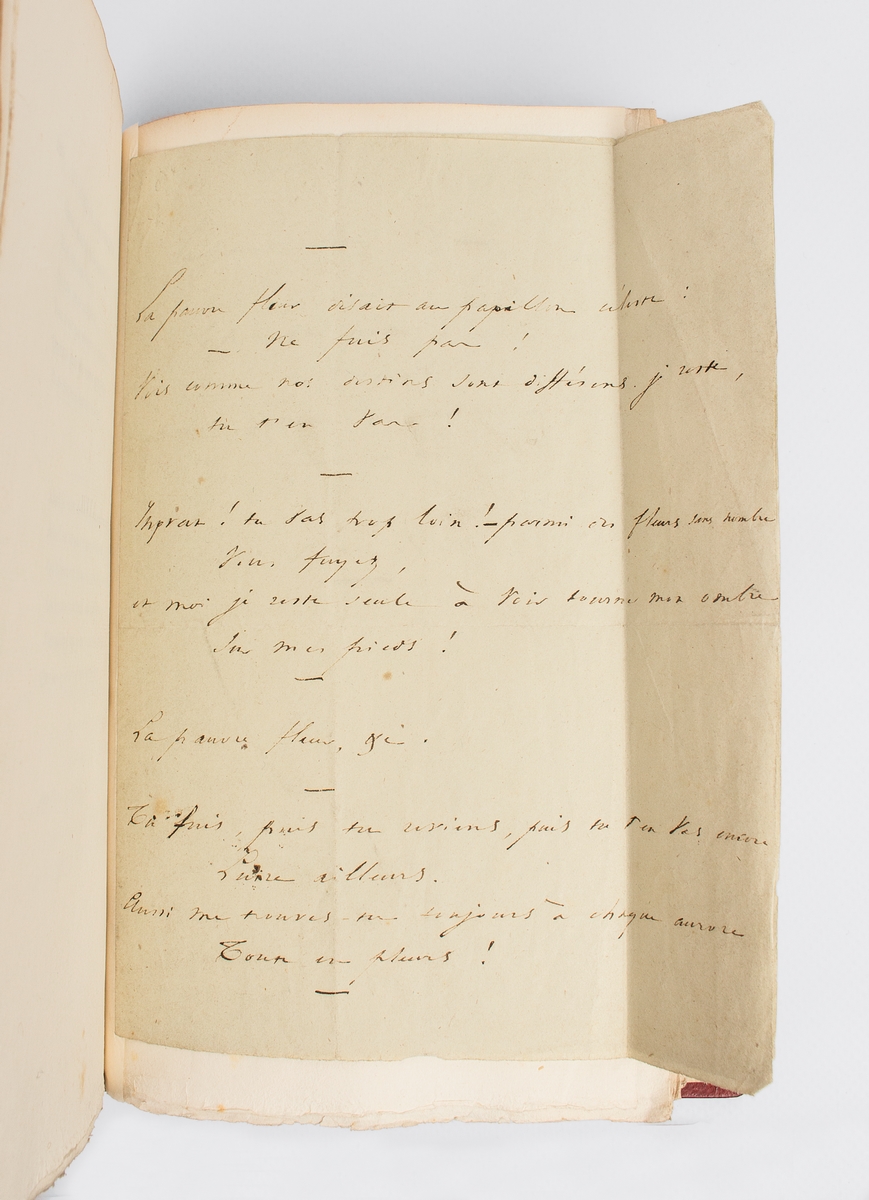 —
La pauvre fleur disait au papillon céleste :
— Ne fuis pas !
Vois comme nos destins sont différens. je reste,
tu t'en vas !
—
Ingrat ! tu vas trop loin ! — parmi des fleurs sans nombre
Vous fuyez,
et moi je reste seule à voir tourner mon ombre
Sur mes pieds !
—
La pauvre fleur, &c.
—
Tu fuis, puis tu reviens, puis tu t'en vas encore
Luire ailleurs.
Aussi me trouves-tu toujours à chaque aurore
Toute en pleurs !
—